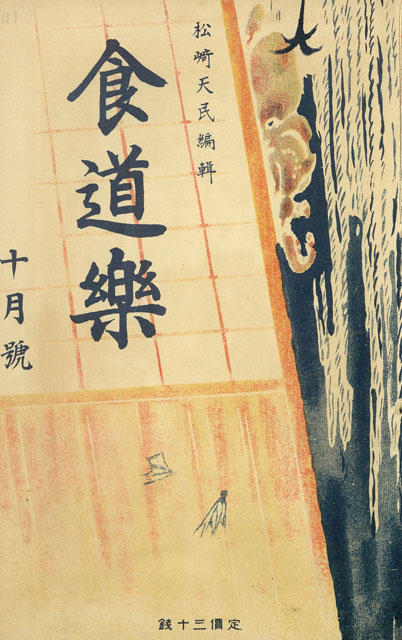 松崎天民編輯
食道樂
十月號
定價三十錢